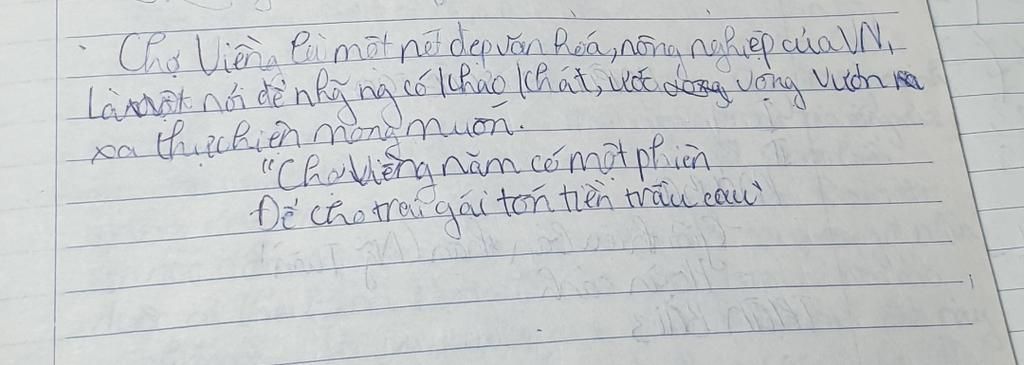 Chợ Viềng là một nét đẹp văn hoá, nông nghiệp của VN,
Là nơi để nhg ng có khao khát, ước vọng vươn
xa thực hiện mong muốn.
"Chợ Viềng năm có một phiên
Để cho trai gái tốn tiền trầu cau"